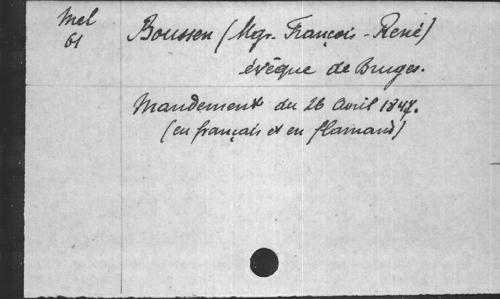 Mel
61
Boussen (Mgr. François-René)
évêque de Bruges.
Mandement du 26 Avril 1847.
(en français et en flamand)